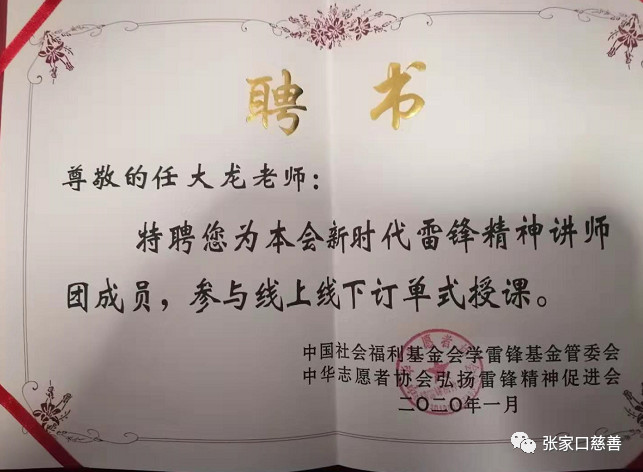 聘 书
尊敬的任大龙老师：
特聘您为本会新时代雷锋精神讲师
团成员，参与线上线下订单式授课。
中国社会福利基金会学雷锋基金管委会
中华志愿者协会弘扬雷锋精神促进会
二〇二〇年一月
张家口慈善